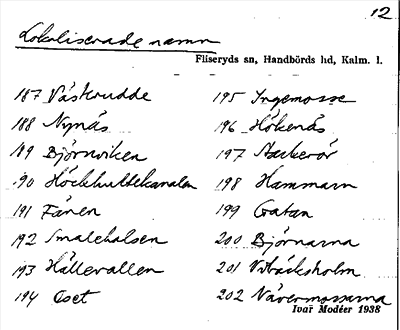 12
Lokaliserade namn
Fliseryds sn, Handbörds hd, Kalm. l.
187 Västrudde
188 Nynäs
189 Björnviken
190 Höckhultekanalen
191 Fånen
192 Smalehalsen
193 Hällevallen
194 Oset
195 Ingemosse
196 Hökenäs
197
198 Hammarn
199 Gatan
200 Björnarna
201
202 Nävermossarna
Ivar Modéer 1938